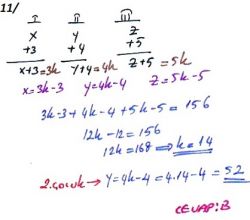 11/
I II III
x y z
+3 +4 +5
x+3=3k y+4=4k z+5=5k
x=3k-3 y=4k-4 z=5k-5
3k-3+4k-4+5k-5=156
12k-12=156
12k=168 ⇒ k=14
2.çocuk → y=4k-4=4.14-4=52
CEVAP:B